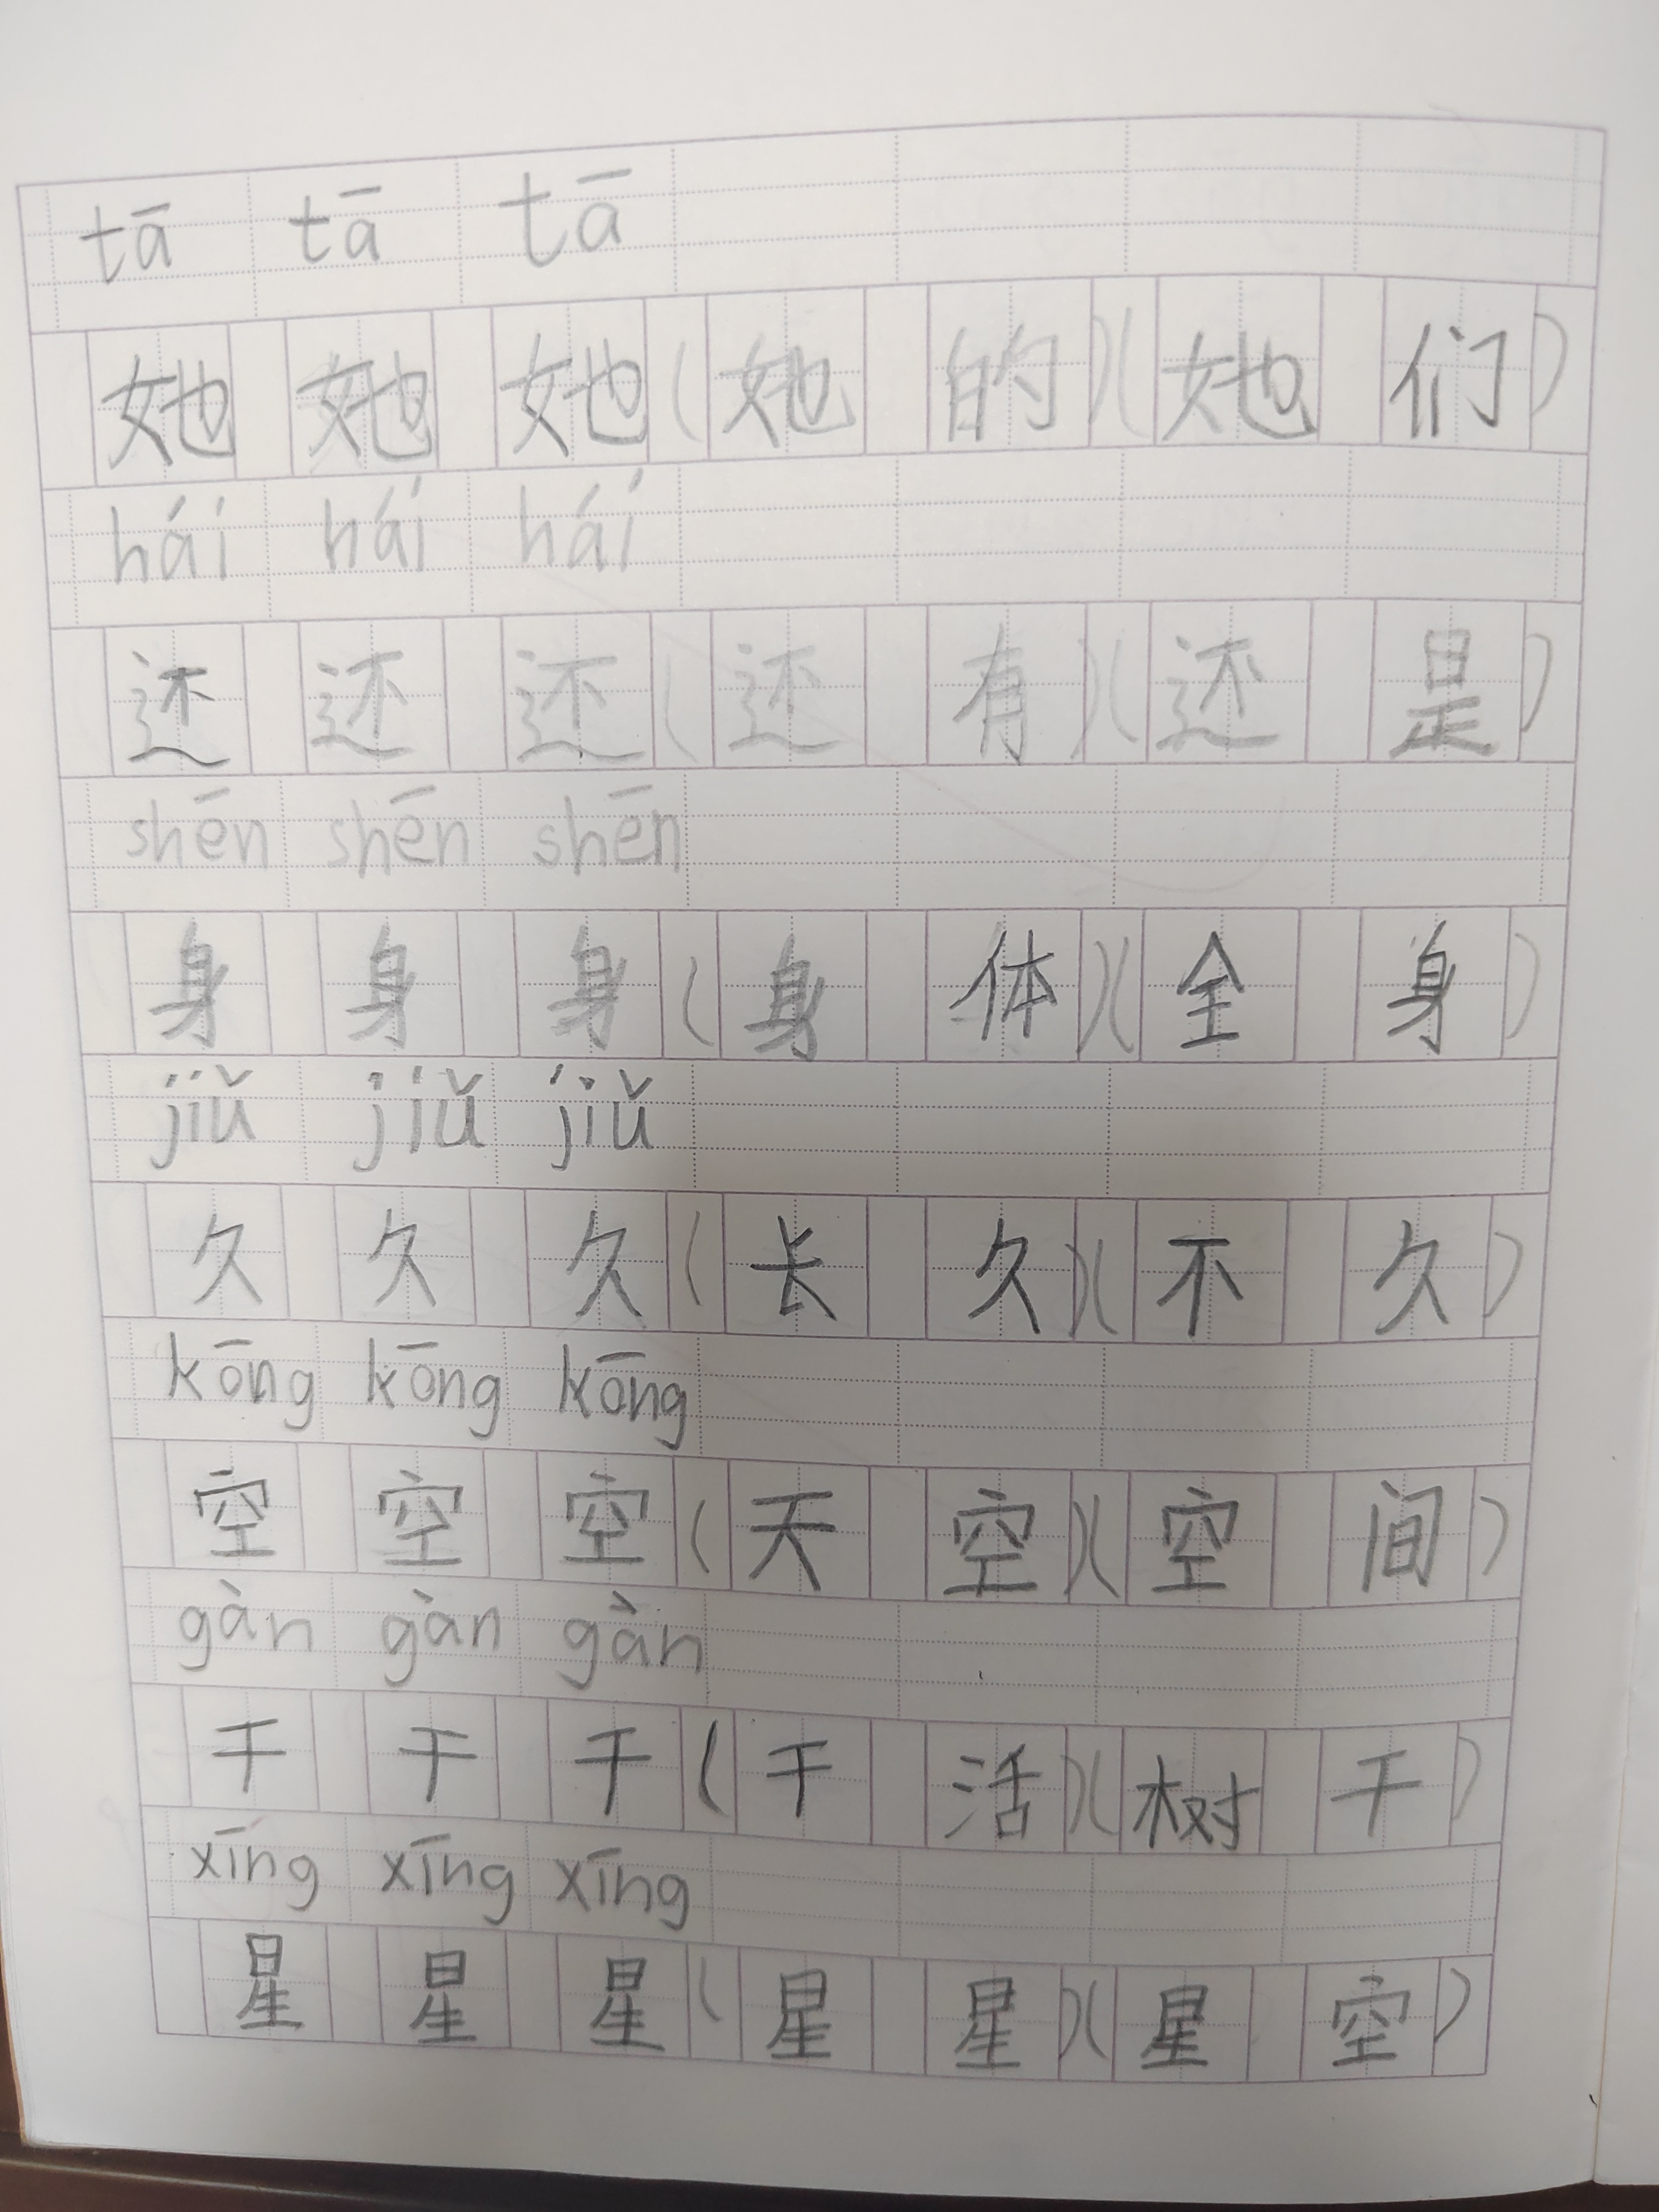 tā tā tā
她 她 她 ( 她 的 ) ( 她 们 )
hái hái hái
还 还 还 ( 还 有 ) ( 还 是 )
shēn shēn shēn
身 身 身 ( 身 体 ) ( 全 身 )
jiǔ jiǔ jiǔ
久 久 久 ( 长 久 ) ( 不 久 )
kōng kōng kōng
空 空 空 ( 天 空 ) ( 空 间 )
gàn gàn gàn
干 干 干 ( 干 活 ) ( 树 干 )
xīng xīng xīng
星 星 星 ( 星 星 ) ( 星 空 )